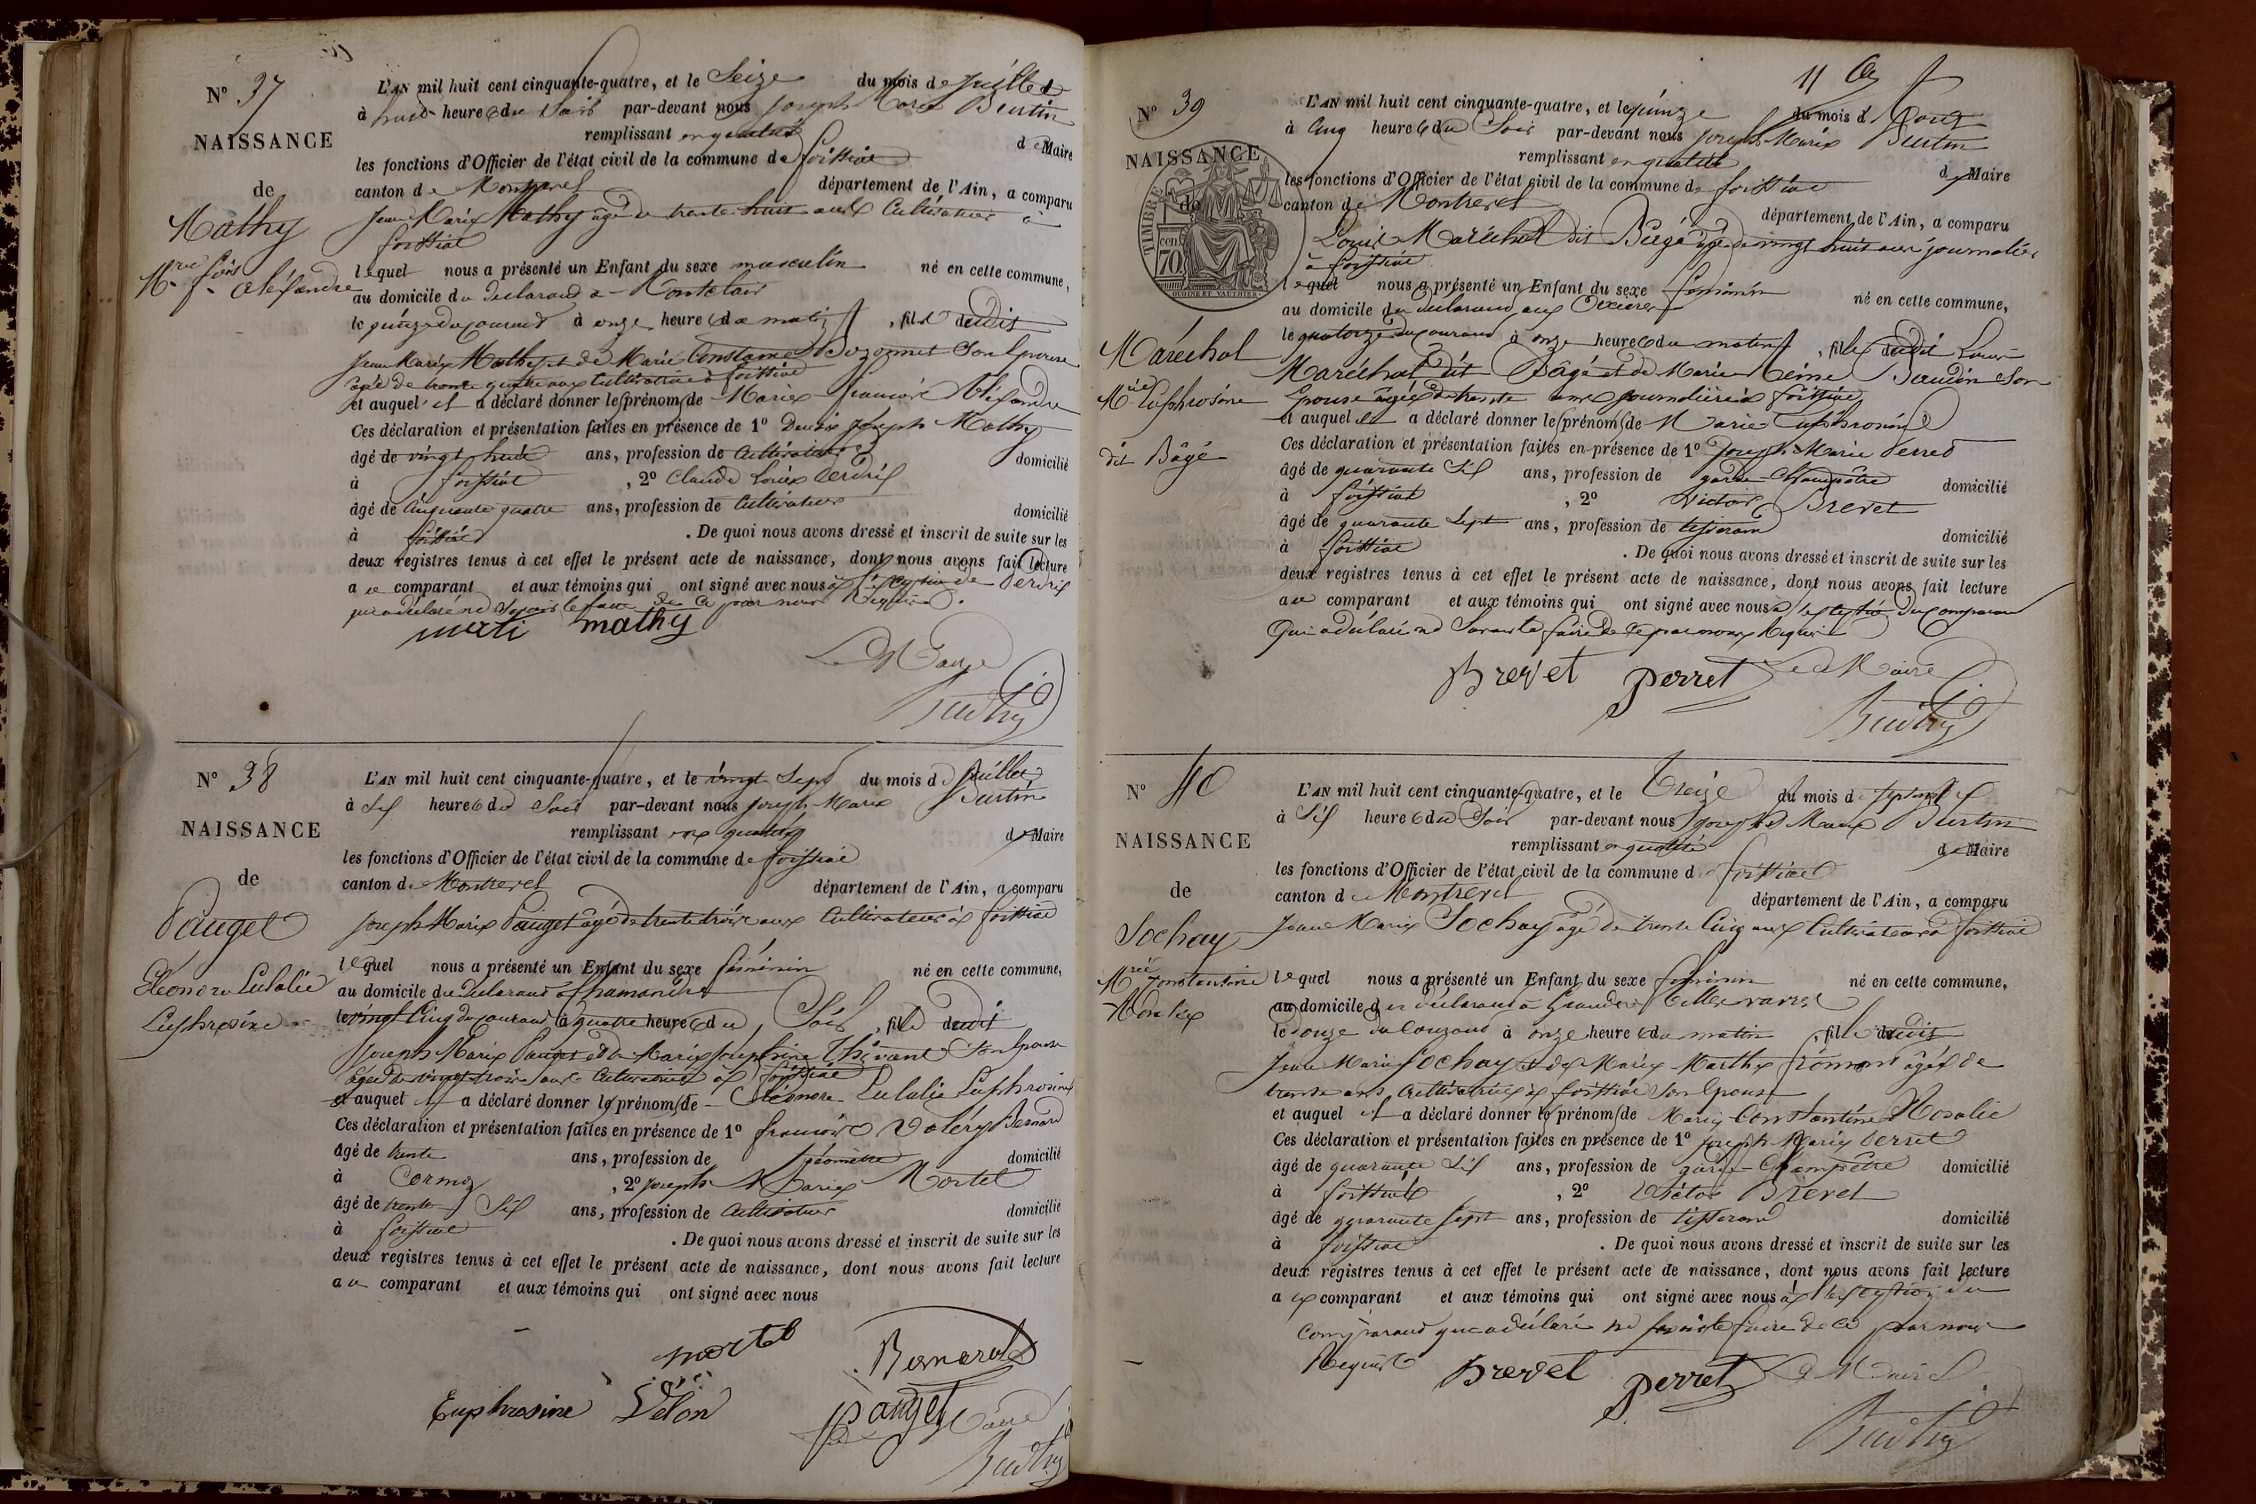 N° 37
NAISSANCE
de
Mathy
M.rie fois
alexandre
L'AN mil huit cent cinquante-quatre, et le Seize du mois de juillet
à huit heures du Soir par-devant nous joseph Marie Burtin
remplissant en qualité de Maire
les fonctions d'Officier de l'état civil de la commune de foissiat
canton de Montrevel département de l'Ain, a comparu
jean Marie Mathy âgé de trente huit ans Cultivateur à
foissiat
lequel nous a présenté un Enfant du sexe masculin né en cette commune,
au domicile du declarant à
le quinze du courant à onze heures du matin, fils dudit
jean Marie Mathy et de Marie Constance Bozonnet Son Epouse
agée de trente quatre ans Cultivatrice à foissiat
et auquel il a déclaré donner les prénoms de Marie françois Aléxandre
Ces déclaration et présentation faites en présence de 1° Denis joseph Mathy
âgé de vingt huit ans, profession de Cultivateur domicilié
à foissiat, 2° Claude Louis
âgé de Cinquante quatre ans, profession de Cultivateur domicilié
à foissiat. De quoi nous avons dressé et inscrit de suite sur les
deux registres tenus à cet effet le présent acte de naissance, dont nous avons fait lecture
au comparant et aux témoins qui ont signé avec nous à l'exception de
qui a déclaré ne Savoir le faire de ce par nous Requis.
mathy
Le Maire
Burtin
N° 38
NAISSANCE
de
Pauget
Eléonore Eulalie
Euphrosine
L'AN mil huit cent cinquante-quatre, et le vingt Sept du mois de Juillet
à Six heures du Soir par-devant nous joseph Marie Burtin
remplissant en qualité de Maire
les fonctions d'Officier de l'état civil de la commune de foissiat
canton de Montrevel département de l'Ain, a comparu
joseph Marie Pauget âgé de trente trois ans Cultivateur à foissiat
lequel nous a présenté un Enfant du sexe féminin né en cette commune,
au domicile du declarant à
le vingt Cinq du courant à quatre heures du Soir, fille dudit
joseph Marie Pauget et de Marie Josephine Son Epouse
agée de vingt trois ans Cultivatrice à foissiat
et auquel il a déclaré donner les prénoms de Eléonore Eulalie Euphrosine
Ces déclaration et présentation faites en présence de 1° françois Valéry Bernard
âgé de trente ans, profession de géomètre domicilié
à Cormoz, 2° joseph Marie Mortel
âgé de trente Six ans, profession de Cultivateur domicilié
à foissiat. De quoi nous avons dressé et inscrit de suite sur les
deux registres tenus à cet effet le présent acte de naissance, dont nous avons fait lecture
au comparant et aux témoins qui ont signé avec nous
mortel Bernard
Euphrosine Pauget
Le Maire
Burtin
N° 39
NAISSANCE
de
TIMBRE
cent
70
Maréchal
M.rie Euphrosine
dit Bâgé
L'AN mil huit cent cinquante-quatre, et le quinze du mois d'Aout
à Cinq heures du Soir par-devant nous joseph Marie Burtin
remplissant en qualité de Maire
les fonctions d'Officier de l'état civil de la commune de foissiat
canton de Montrevel département de l'Ain, a comparu
Louis Maréchal dit Bâgé âgé de vingt huit ans journalier
à foissiat
lequel nous a présenté un Enfant du sexe féminin né en cette commune,
au domicile du declarant aux
le quatorze du courant à onze heures du matin, fille dudit Louis
Maréchal dit Bâgé et de Marie Reine Son
Epouse agée de trente ans journalière à foissiat
et auquel il a déclaré donner les prénoms de Marie Euphrosine
Ces déclaration et présentation faites en présence de 1° Joseph Marie Perret
âgé de quarante Six ans, profession de garde Champêtre domicilié
à foissiat, 2° Victor Brevet
âgé de quarante Sept ans, profession de tisserand domicilié
à foissiat. De quoi nous avons dressé et inscrit de suite sur les
deux registres tenus à cet effet le présent acte de naissance, dont nous avons fait lecture
au comparant et aux témoins qui ont signé avec nous à l'exception du Comparant
Qui a déclaré ne Savoir le faire de Ce par nous Requis
Brevet Perret Le Maire
Burtin
N° 40
NAISSANCE
de
Sochay
M.rie Constantine
Rosalie
L'AN mil huit cent cinquante-quatre, et le Treize du mois de septembre
à Six heures du Soir par-devant nous joseph Marie Burtin
remplissant en qualité de Maire
les fonctions d'Officier de l'état civil de la commune de foissiat
canton de Montrevel département de l'Ain, a comparu
Jean Marie Sochay âgé de trente Cinq ans Cultivateur à foissiat
lequel nous a présenté un Enfant du sexe féminin né en cette commune,
au domicile du déclarant à
le douze du Courant à onze heures du matin, fille dudit
Jean Marie Sochay et de Marie Marthe âgée de
trente ans Cultivatrice à foissiat Son Epouse
et auquel il a déclaré donner les prénoms de Marie Constantine Rosalie
Ces déclaration et présentation faites en présence de 1° joseph Marie Perret
âgé de quarante Six ans, profession de garde Champêtre domicilié
à foissiat, 2° Victor Brevet
âgé de quarante Sept ans, profession de tisserand domicilié
à foissiat. De quoi nous avons dressé et inscrit de suite sur les
deux registres tenus à cet effet le présent acte de naissance, dont nous avons fait lecture
au comparant et aux témoins qui ont signé avec nous à l'exception du
Comparant qui a déclaré ne Savoir le faire de ce par nous
Requis
Brevet Perret Le Maire
Burtin